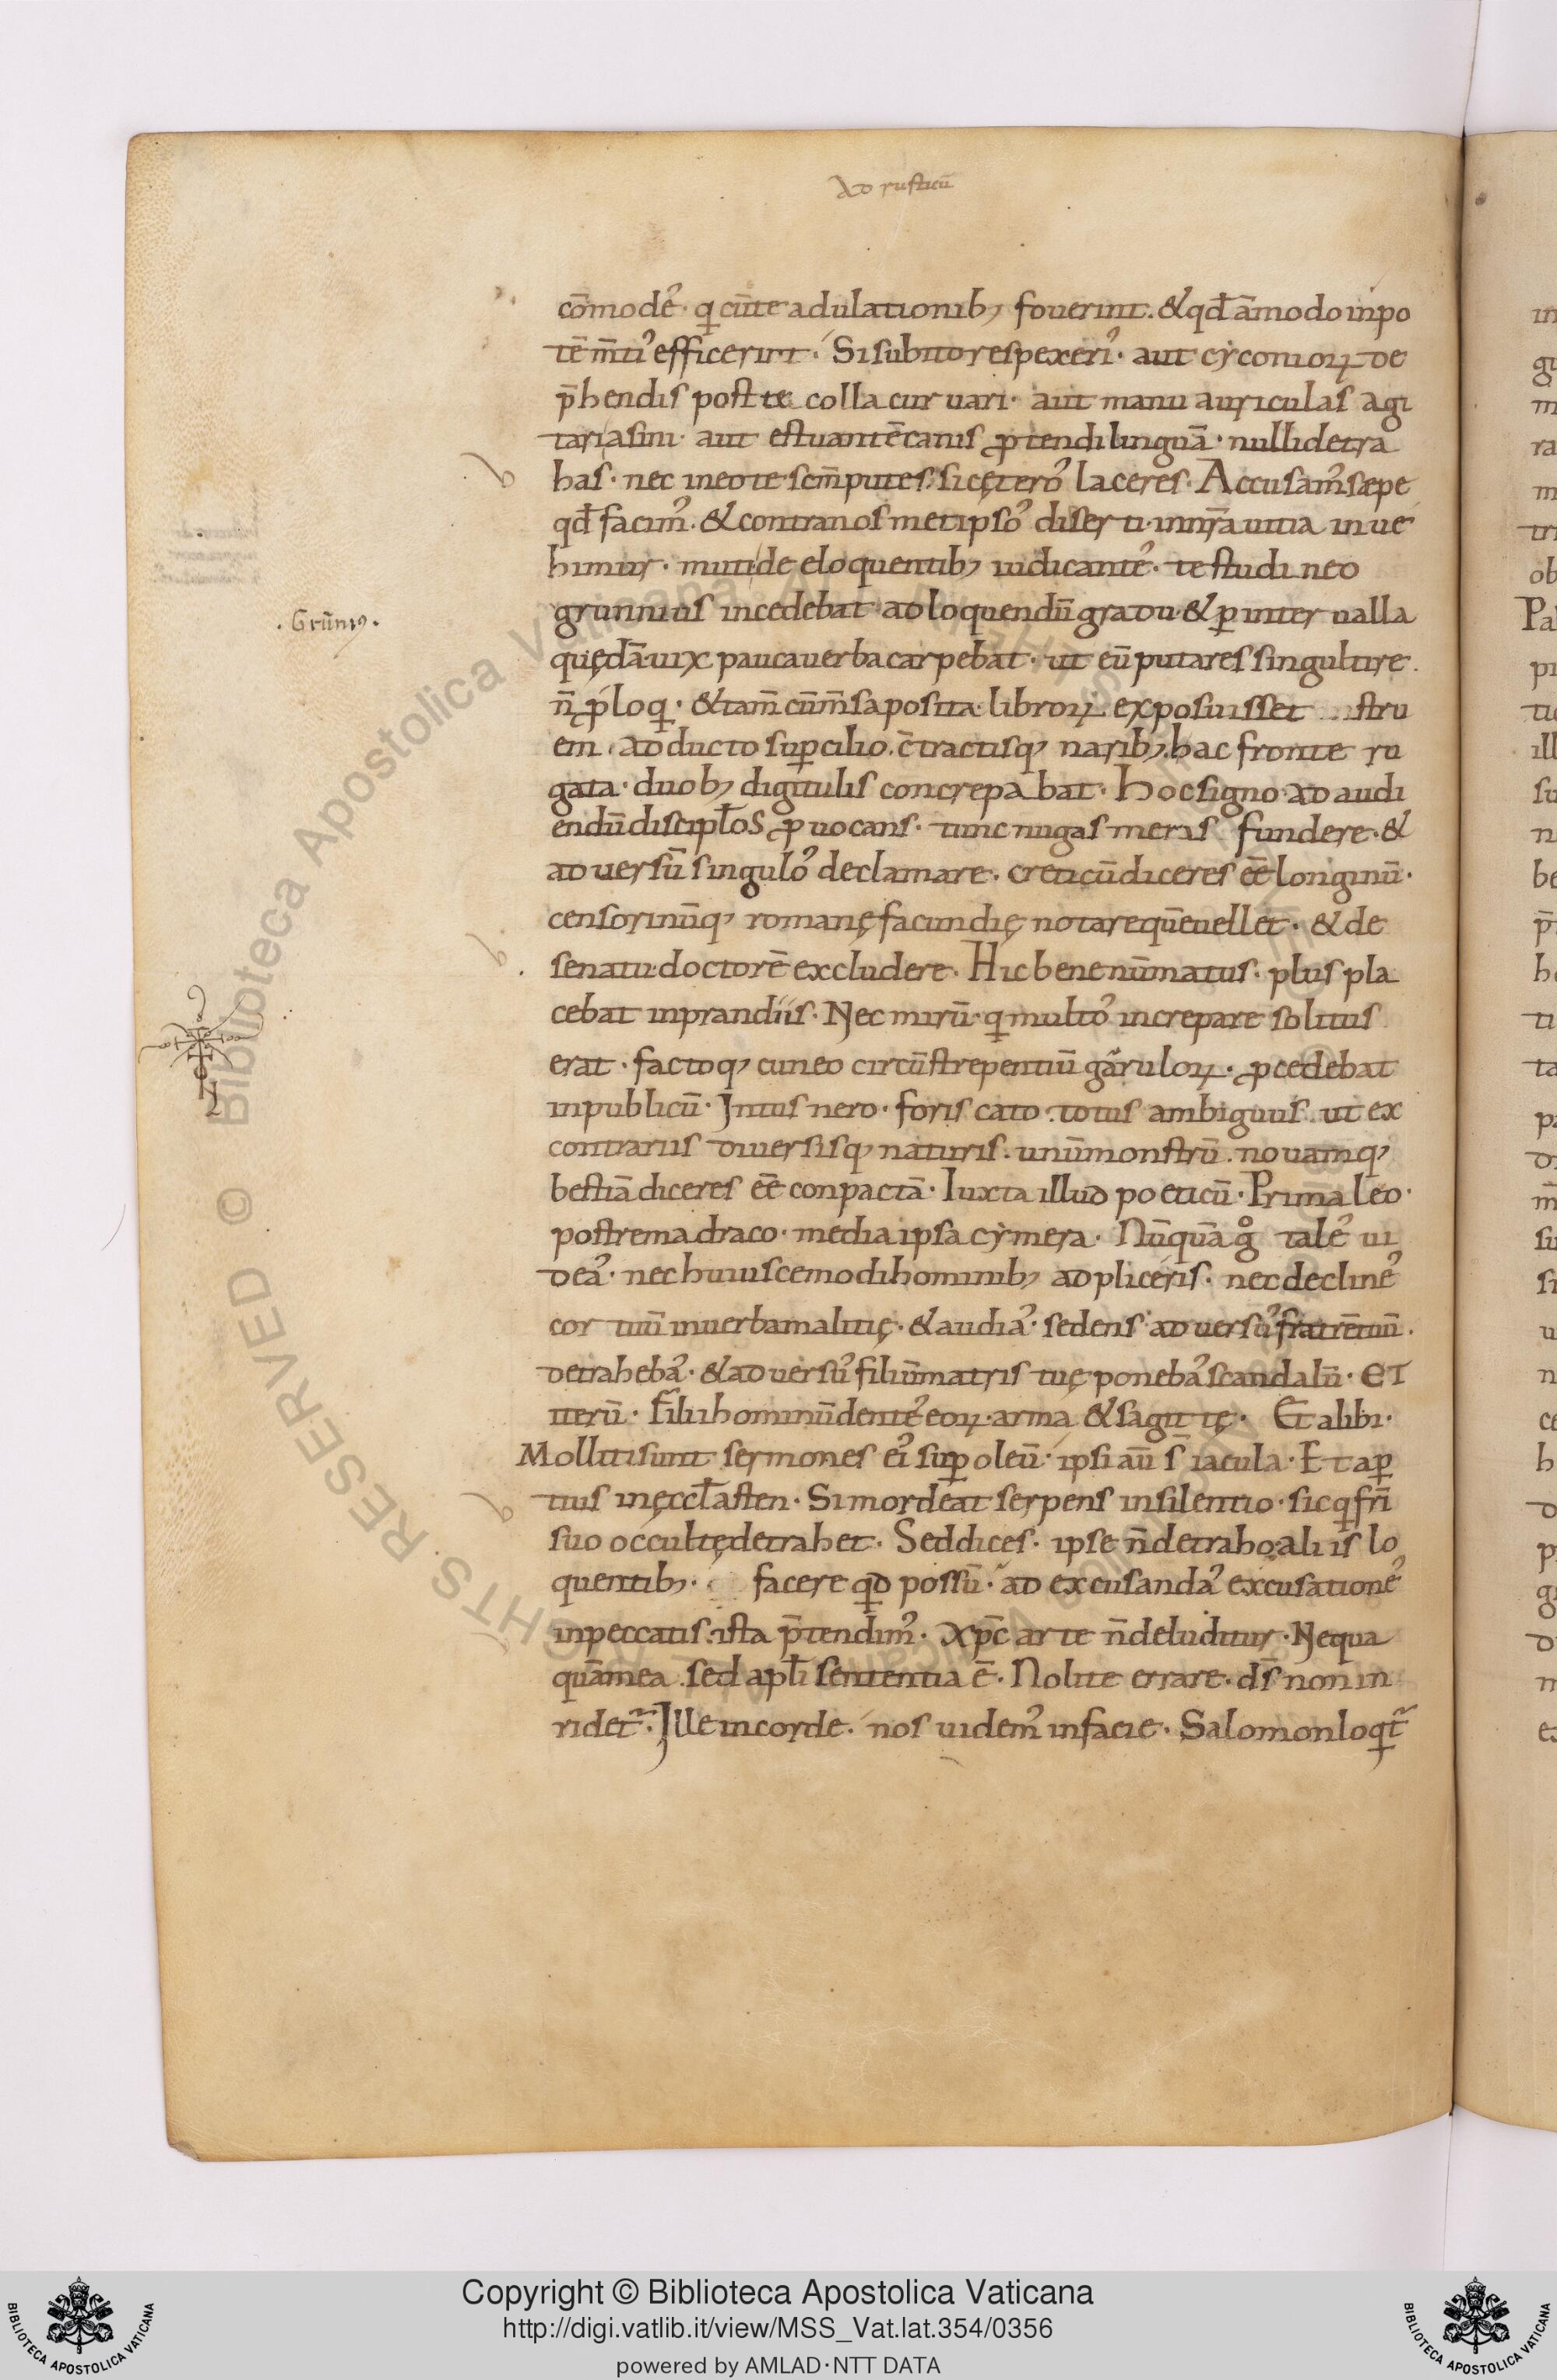 Ad rusticū
cōmodeˀ· q̲i cūte adulationib; fouerint. & qd̄ āmodo inpo
tē m̄tiˀ efficerint· Si subito respexeriˀ· aut cyconioꝝ de
p̄hendis post te colla curuari· aut manu auriculas agi
tari asini· aut estuantē canis ꝓtendi linguā· nulli detra
has· nec in eo te sc̄m putes· si cęteroˀ laceres· Accusam̄ˀ sæpe
qd̄ facimˀ· & contra nos metipsoˀ diserti· in nr̄a uitia inue
himur· muti de eloquentib; iudicanteˀ· testudineo
·Grūniꝰ·
grunnius incedebat ad loquendū gradu· & ꝑ interualla
quędā uix pauca uerba carpebat· ut eū putares singultire.
n̄ ꝓloqi· & tam̄ cū m̄sa posita libroꝝ exposuisset stru
em· adducto suꝑcilio· c̄tractisq; narib;· hac fronte ru
gata· duob; digitulis concrepabat· hoc signo ad audi
endū discipl̄os ꝓuocans· tunc nugas meras fundere· &
aduersū singuloˀ declamare· creticū diceres eē̄ longinū·
censorinūq; romanę facundię notare quē uellet· & de
senatu doctorē excludere· Hic bene nūmatus· plus pla
cebat in prandiis· Nec mirū· qi multoˀ increpare solitus
erat· factoq; cuneo circūstrepentiū garruloꝝ· ꝓcedebat
in publicū· Intus nero· foris cato· totus ambiguus ut ex
contrariis diuersisq; naturis· unū monstrū· nouamq;
bestiā diceres eē̄ conpactā· Iuxta illud poeticū· Prima leo·
postrema draco· media ipsa cymera· Nūquā g̊ taleˀ ui
deaˀ· nec huiuscemodi hominib; adpliceris· nec declineˀ
cor tuū in uerba malitię· & audiaˀ· sedens aduersūˀ fratrē tuū·
detrahebaˀ· & aduersūˀ filiū matris tuę ponebaˀ scandalū· ET
iterū· Filii hominū denteˀ eoꝝ· arma & sagittę· Et alibi·
Molliti sunt sermones eiˀ suꝑ oleū· ipsi aū s̄ iacula· Et aꝑ
tius in ęccl̄asten· Si mordeat serpens in silentio· sic qi fr̄i
suo occultę detrahet· Sed dices· ipse n̄ detraho· aliis lo
quentib;· facere qd possū· ad excusandaˀ excusationeˀ
in peccatis· ista p̄tendimˀ· xp̄c arte n̄ deluditur· Nequa
quā mea sed apl̄i sententia ē· Nolite errare· ds̄ non in
ridet᷑· Ille in corde· nos uidemˀ in facie· Salomon loqit᷑
Copyright © Biblioteca Apostolica Vaticana
http://digi.vatlib.it/view/MSS_Vat.lat.354/0356
powered by AMLAD·NTT DATA